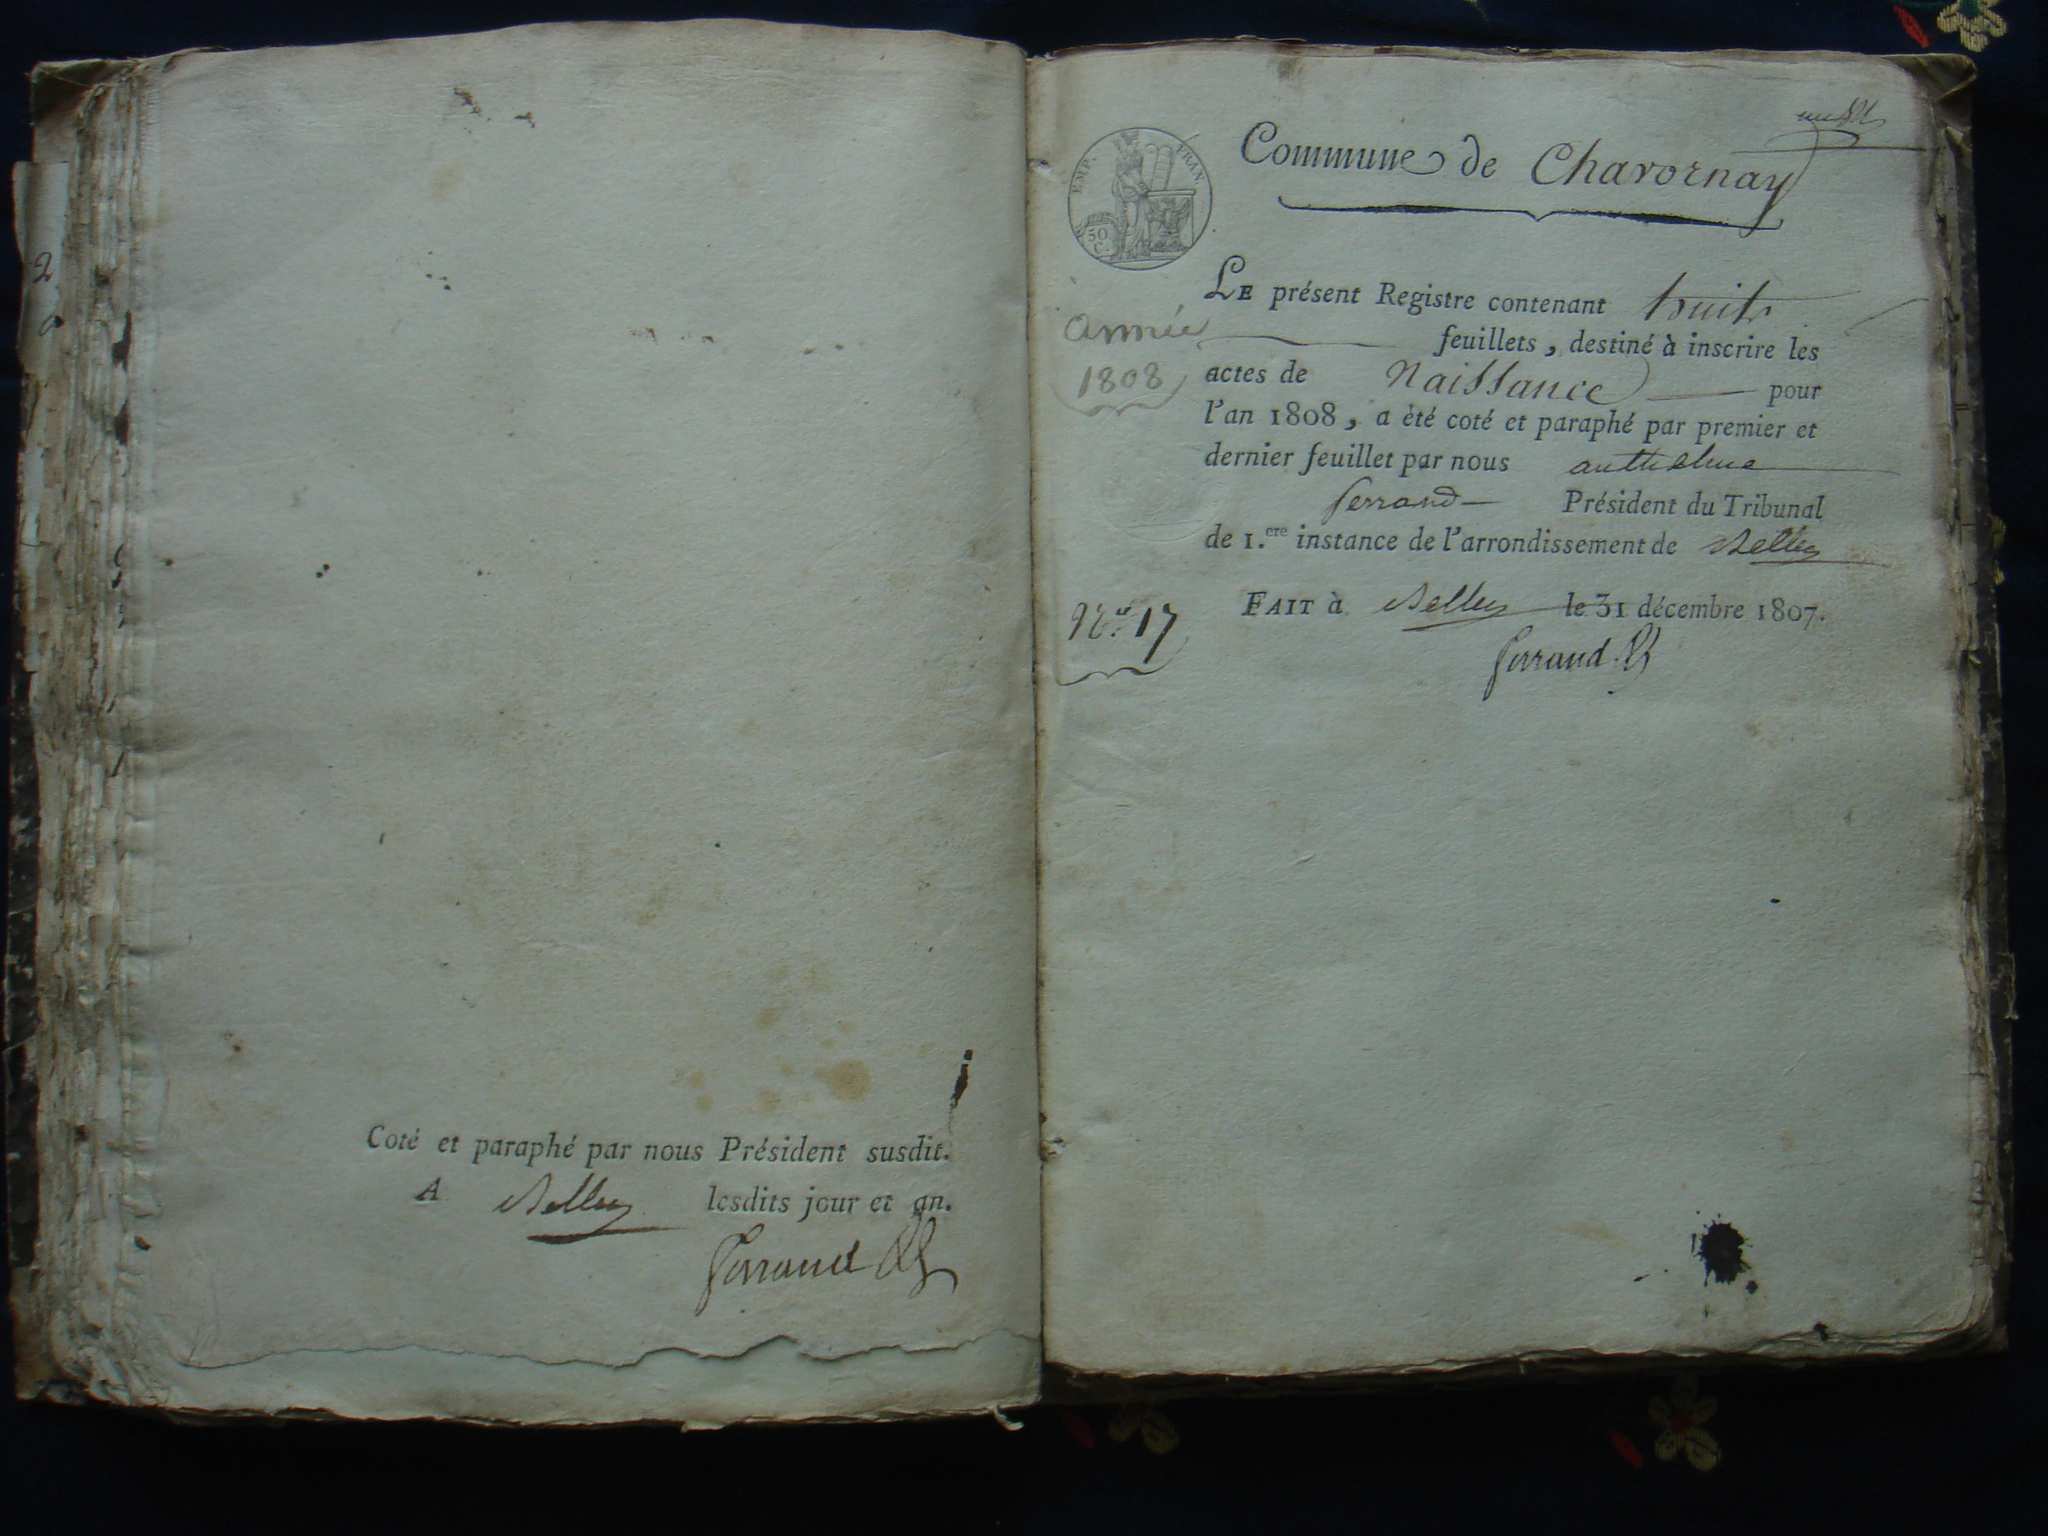 2
Coté et paraphé par nous Président susdit.
A Belley lesdits jour et an.
Ferrand
Commune de Chavornay
EMP. FRAN.
50
C.
LE présent Registre contenant huit
année
feuillets, destiné à inscrire les
1808
actes de Naissance pour
l'an 1808, a été coté et paraphé par premier et
dernier feuillet par nous anthelme
ferrand Président du Tribunal
de 1.ere instance de l'arrondissement de Belley
N.o 17
FAIT à Belley le 31 décembre 1807.
Ferrand